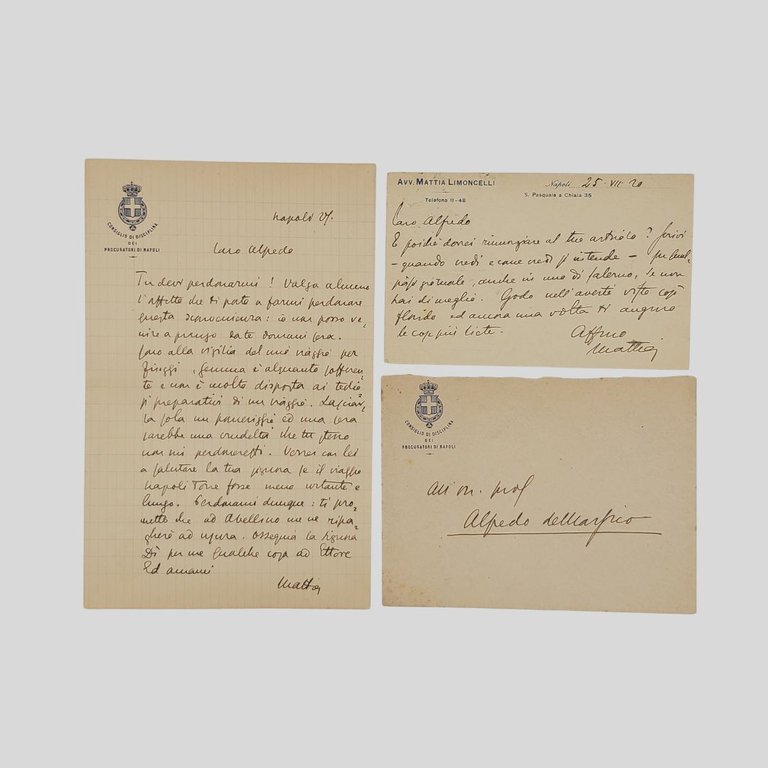 CONSIGLIO DI DISCIPLINA
DEI
PROCURATORI DI NAPOLI
Napoli
Caro Alfredo
Tu devi perdonarmi! Valga almeno
l'affetto che ti porto a farmi perdonare
questa sconvenienza: io non posso ve-
nire a pranzo da te domani sera.
Sono alla vigilia del mio viaggio per
Fiuggi, Gemma è alquanto sofferen-
te e non è molto disposta ai tedio-
si preparativi di un viaggio. Lasciar-
la sola un pomeriggio ed una sera
sarebbe una crudeltà che tu stesso
non mi perdoneresti. Verrei con lei
a salutare la tua signora se il viaggio
Napoli Torre fosse meno urtante e
lungo. Perdonami dunque: ti pro-
metto che ad Avellino me ne ripa-
gherò ad usura. Ossequia la signora
Dì per me qualche cosa ad Ettore
Ed amami
Mattia
AVV. MATTIA LIMONCELLI
Telefono 11-48
Napoli, 25 · VII · 20
S. Pasquale a Chiaia 35
Caro Alfredo
E poichè dovrei rinunziare al tuo articolo? Scrivi
- quando credi e come credi s'intende - su qual-
siasi giornale, anche in uno di Salerno, se non
hai di meglio. Godo nell'averti visto così
florido ed ancora una volta ti auguro
le cose più liete.
Affmo
Mattia
CONSIGLIO DI DISCIPLINA
DEI
PROCURATORI DI NAPOLI
All'on. prof
Alfredo deMarsico